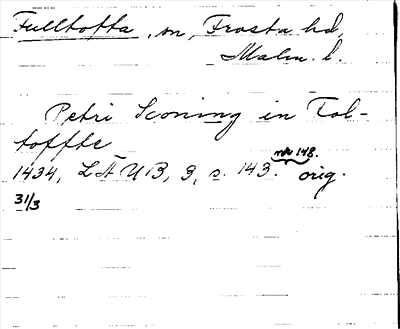 Fulltofta, sn, Frosta hd,
Malm. l.
Petri Sconing in Fol-
toffte
nr 148.
1434, LÄUB, 3, s. 143. orig.
31/3